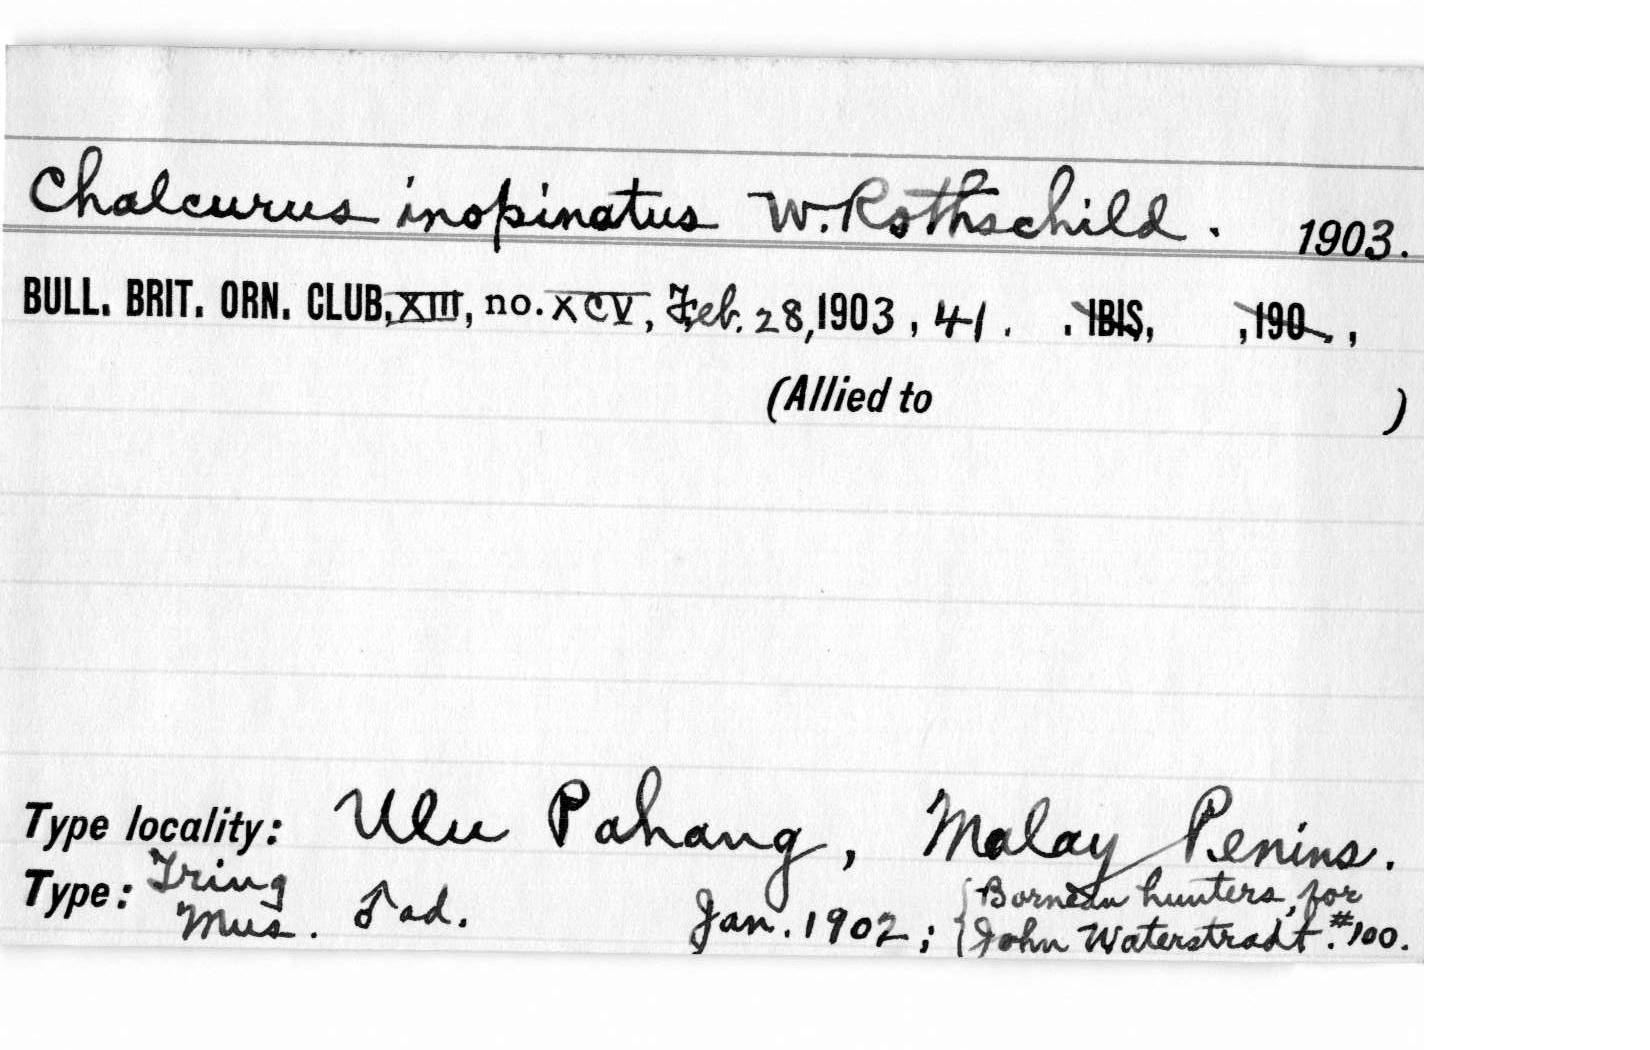 Chalcurus inopinatus W. Rothschild. 1903.
BULL. BRIT. ORN. CLUB, XIII, no. XCV, Feb. 28, 1903, 41. . IBIS, , 190 . ,
(Allied to )
Type locality: Ulu Pahang, Malay Penins.
Type: Tring Mus. ♂ ad. Jan. 1902; {Bornean hunters, for
John Waterstradt. #100.